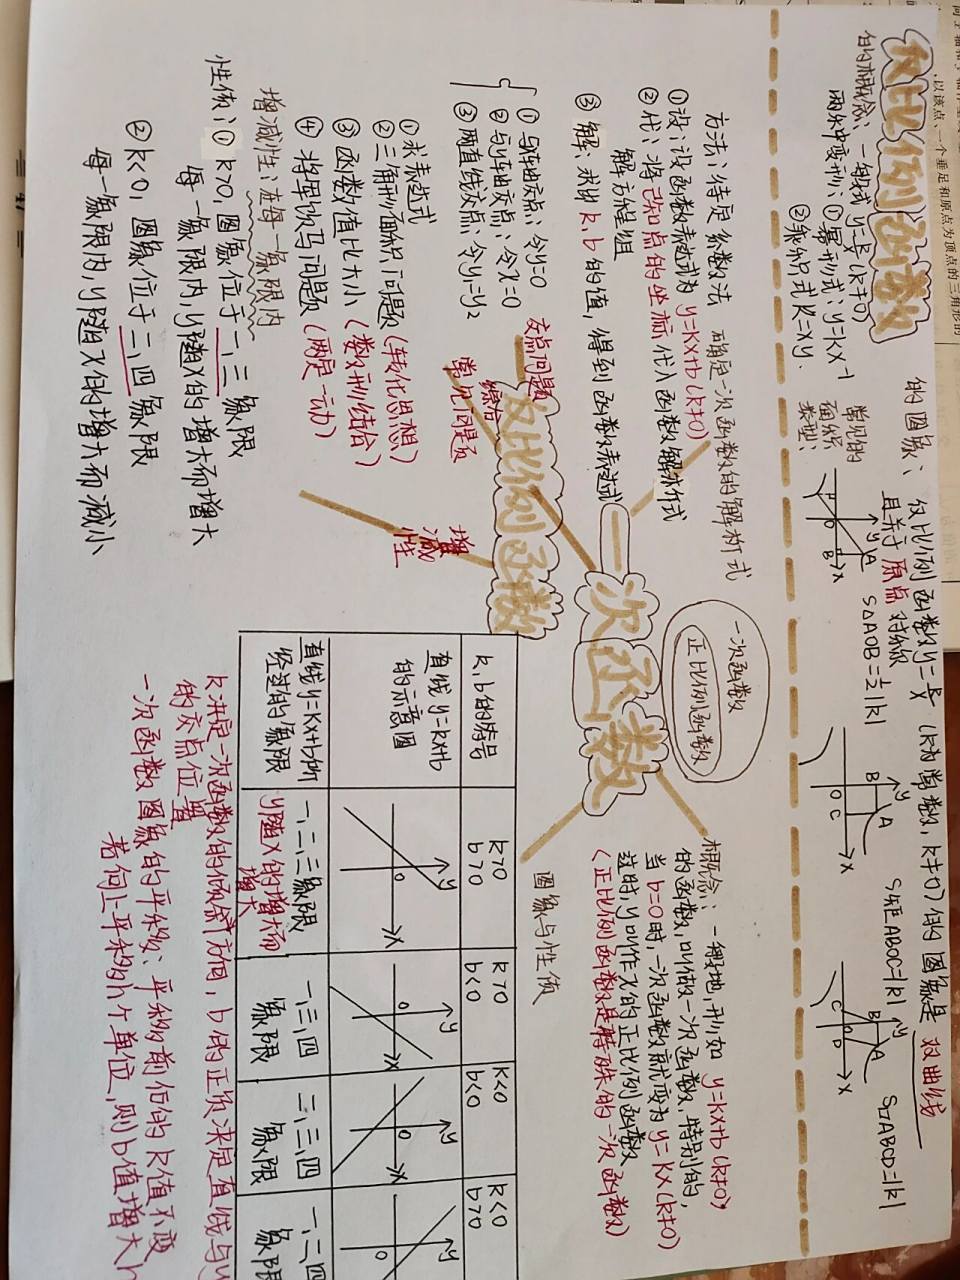 反比例函数
的概念：一般式 y=k/x (k≠0)
两个中变形：①幂形式：y=kx⁻¹
②乘积式 k=xy.
的图象：反比例函数 y=k/x (k为常数,k≠0) 的图象是 双曲线
且关于原点对称
常见的
面积
类型：
S△AOB=½|k|
S矩ABOC=|k|
S▱ABCD=|k|
一次函数
一次函数
正比例函数
方法：待定系数法 确定一次函数的解析式
①设：设函数表达式为 y=kx+b(k≠0)
②代：将已知点的坐标代入函数解析式
解方程组
③解：求出 k,b 的值,得到函数表达式
概念：一般地,形如 y=kx+b(k≠0)
的函数,叫做一次函数,特别的,
当 b=0时,一次函数就变为 y=kx(k≠0)
这时,y叫作x的正比例函数
(正比例函数是特殊的一次函数)
图象与性质
k,b的符号
k>0
b>0
k>0
b<0
k<0
b<0
k<0
b>0
直线 y=kx+b
的示意图
直线 y=kx+b所
经过的象限
一、二、三象限
y随x的增大而
增大
一、三、四
象限
二、三、四
象限
一、二、四
象限
k决定一次函数的倾斜方向,b的正负决定直线与y
的交点位置
一次函数图象的平移：平移前后的k值不变
若向上平移h个单位,则b值增大h
反比例函数
交点问题
综合
常见问题
增减性
①与x轴交点：令y=0
②与y轴交点：令x=0
③两直线交点：令y₁=y₂
①求表达式
②三角形面积问题 (转化思想)
③函数值比大小 (数形结合)
④将军饮马问题 (两定一动)
增减性：在每一象限内
性质：①k>0,图象位于一、三象限
每一象限内,y随x的增大而增大
②k<0,图象位于二、四象限
每一象限内,y随x的增大而减小